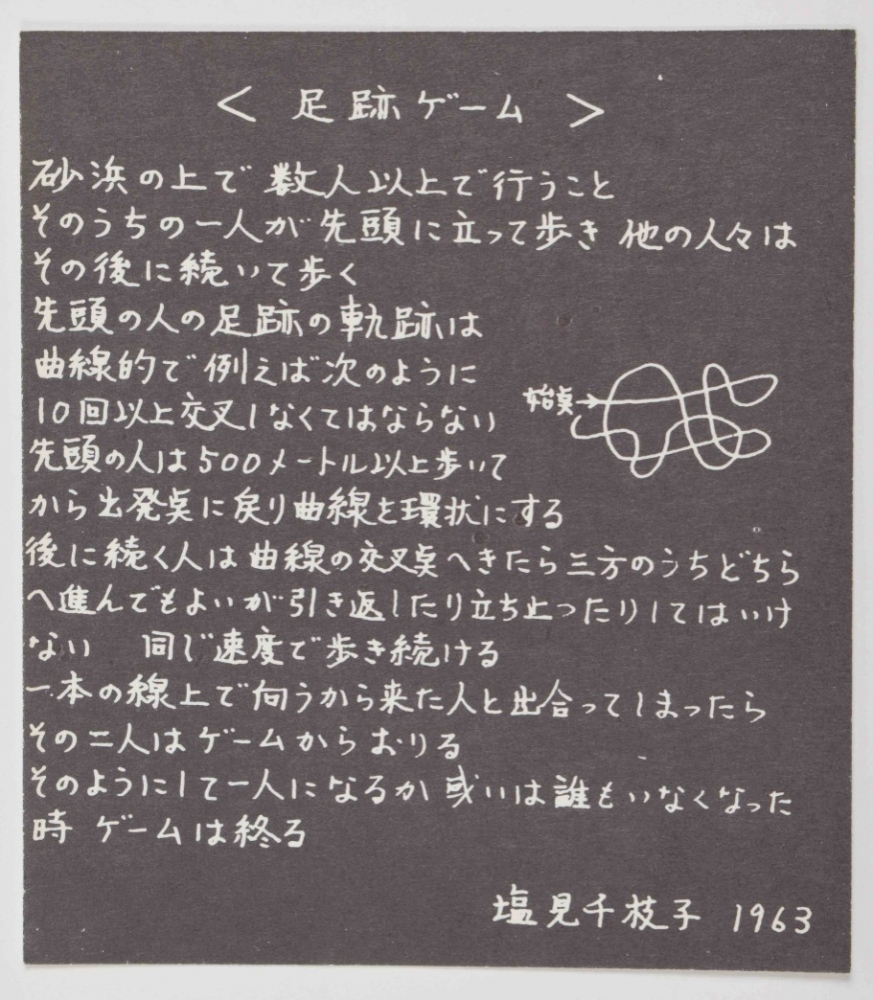 < 足跡ゲーム >
砂浜の上で 数人以上で行うこと
そのうちの一人が 先頭に立って歩き 他の人々は
その後に続いて歩く
先頭の人の足跡の軌跡は
曲線的で 例えば次のように
10回以上交叉しなくてはならない
始点
先頭の人は500メートル以上歩いて
から出発点に戻り曲線を環状にする
後に続く人は曲線の交叉点へきたら三方のうちどちら
へ進んでもよいが引き返したり立ち止ったりしてはいけ
ない 同じ速度で歩き続ける
一本の線上で向うから来た人と出合ってしまったら
その二人はゲームからおりる
そのようにして一人になるか 或いは誰もいなくなった
時 ゲームは終る
塩見千枝子 1963